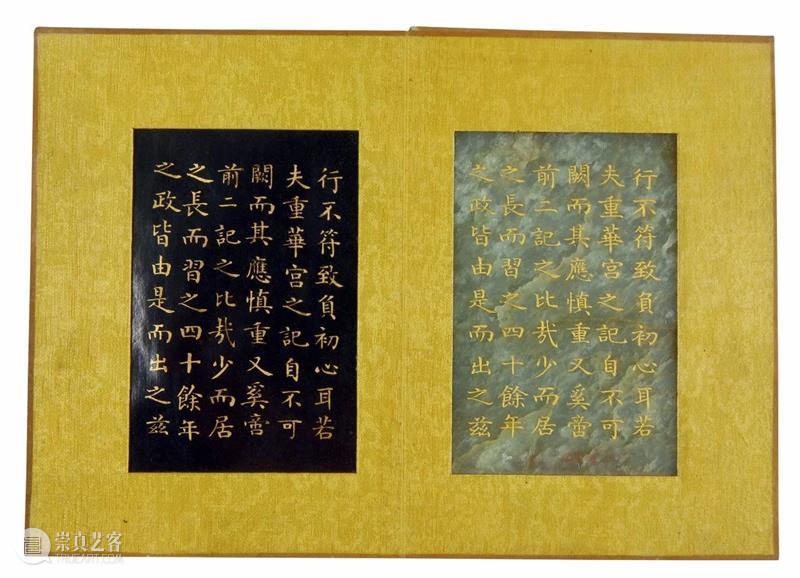 行不符致負初心耳若
夫重華宮之記自不可
闕而其應慎重又奚啻
前二記之比哉少而居
之長而習之四十餘年
之政皆由是而出之茲
行不符致負初心耳若
夫重華宮之記自不可
闕而其應慎重又奚啻
前二記之比哉少而居
之長而習之四十餘年
之政皆由是而出之茲
崇真艺客
TRUEART.COM